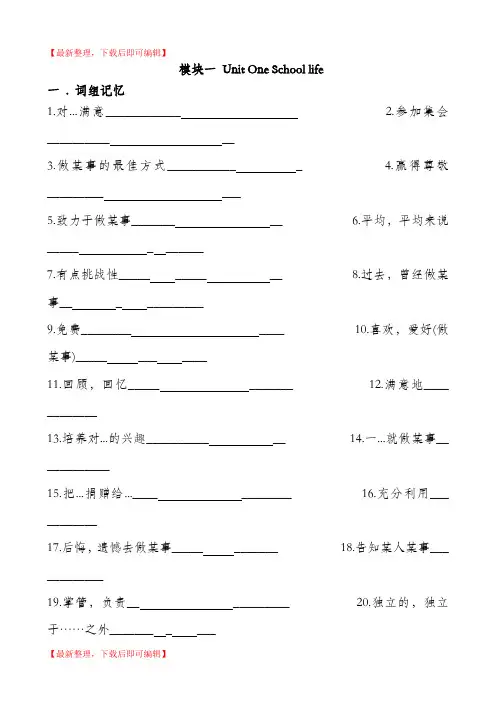 【最新整理，下载后即可编辑】
模块一 Unit One School life
一 . 词组记忆
1.对...满意____________ 2.参加集会
____________ __
3.做某事的最佳方式___________ _ 4.赢得尊敬
_________ ___
5.致力于做某事_______ __ 6.平均，平均来说
_____ _ _______
7.有点挑战性_____ _____ __ 8.过去，曾经做某
事__ _ _________
9.免费________ ____ 10.喜欢，爱好(做
某事)_____ ___ ____
11.回顾，回忆_____ _______ 12.满意地____
________
13.培养对...的兴趣__________ __ 14.一...就做某事__
__________
15.把...捐赠给...____ ________ 16.充分利用___
________
17.后悔，遗憾去做某事_____ _______ 18.告知某人某事___
_________
19.掌管，负责__ _________ 20.独立的，独立
于……之外_______ _ ___
【最新整理，下载后即可编辑】